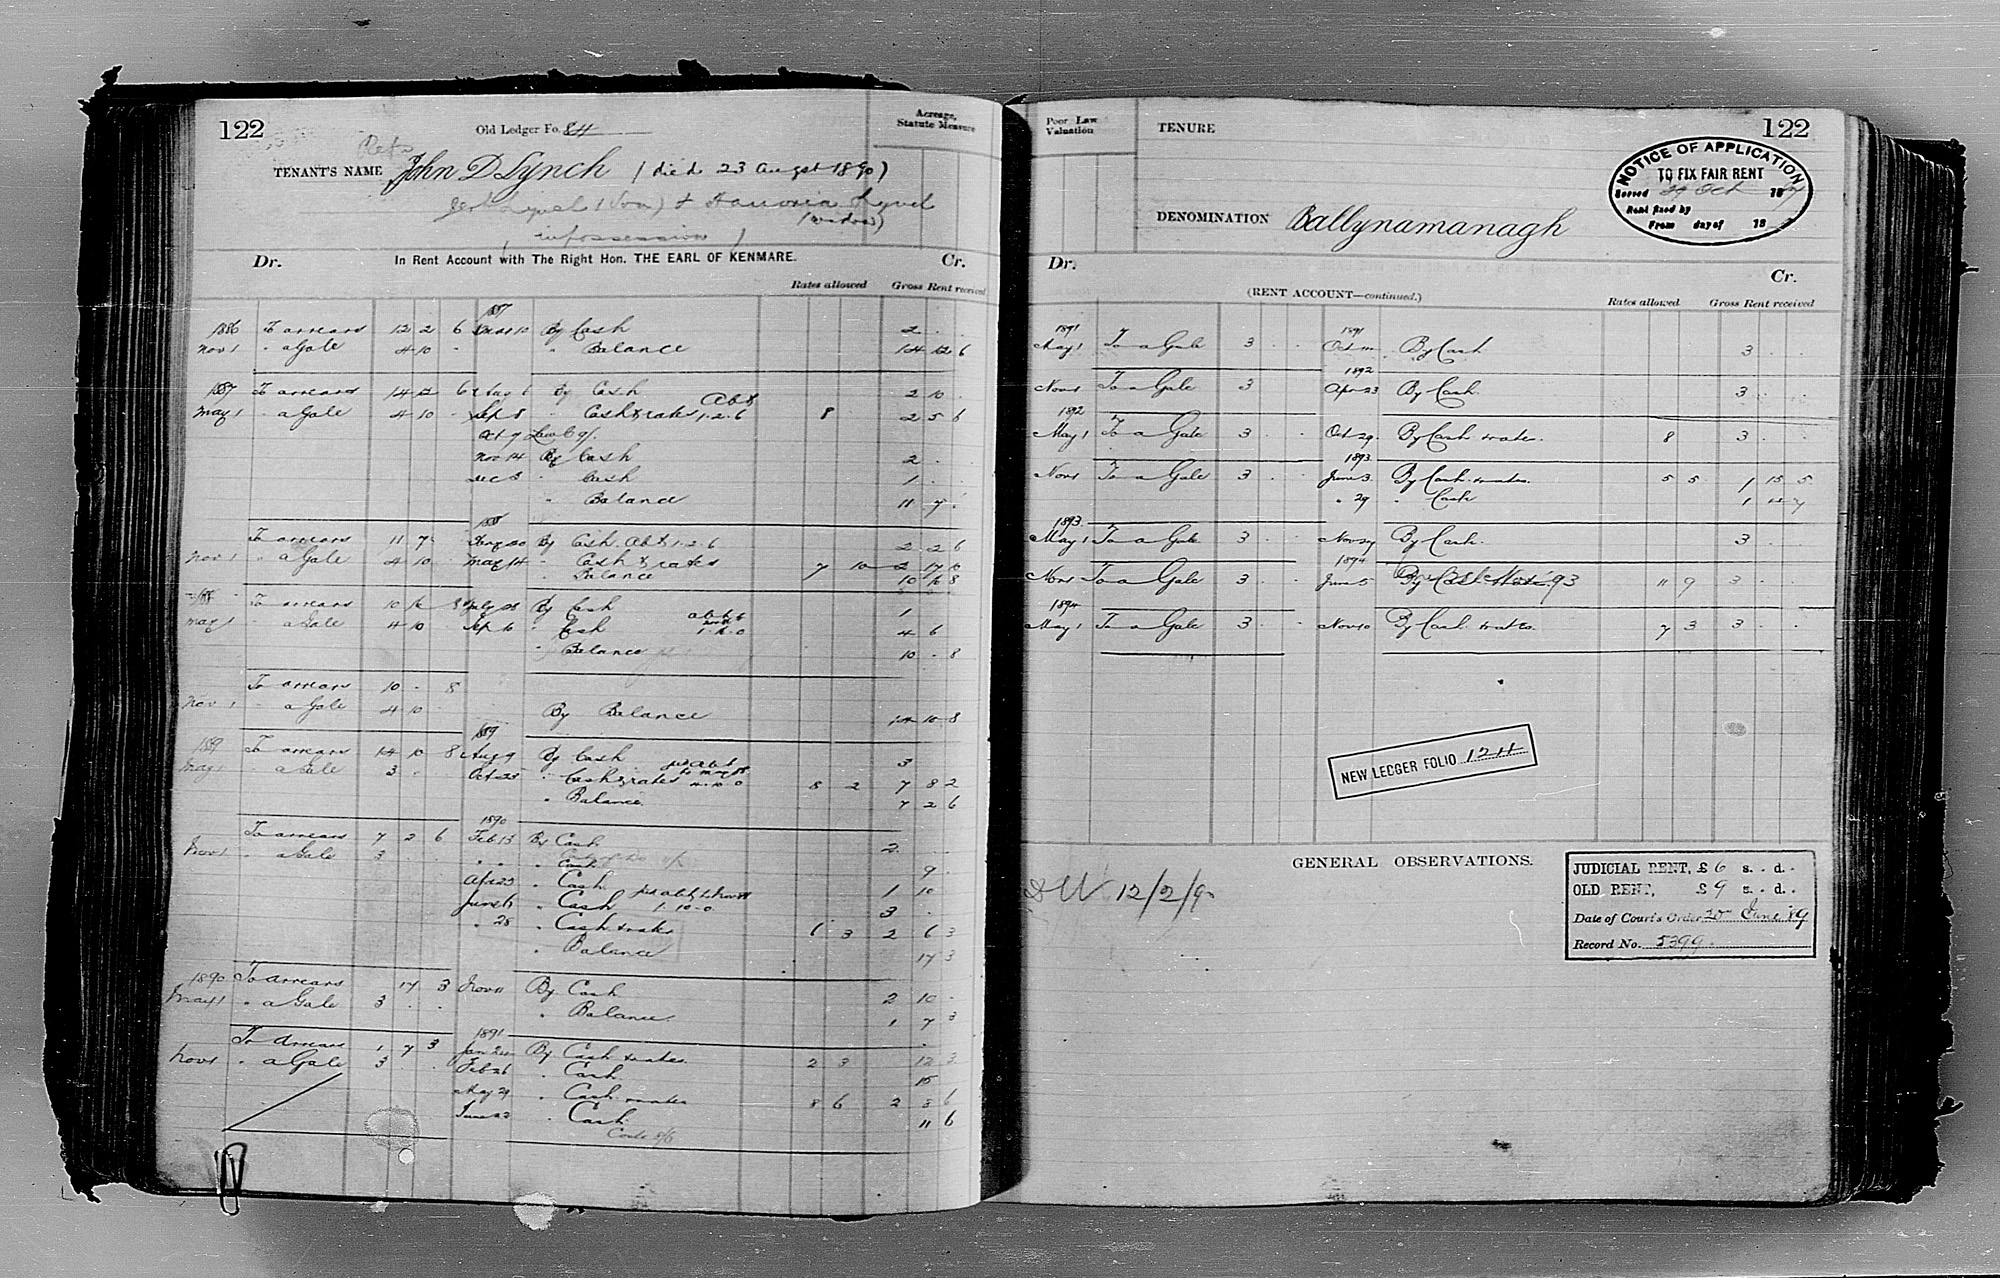 122
Old Ledger Fo. 84
Acreage, Statute Measure
TENANT'S NAME Reps John D Lynch (died 23 Augst 1890)
Lynch (Son) & Hanoria Lynch
(widow)
(in possession)
Dr. In Rent Account with The Right Hon. THE EARL OF KENMARE. Cr.
Rates allowed Gross Rent received
1887
1886 To arrears 12 2 6 By Cash 2 . .
Nov 1 " a Gale 4 10 - " Balance 14 12 6
1887 To arrears 14 12 6 Aug 6 By Cash 2 10 .
May 1 " a Gale 4 10 - Sep 8 " Cash & rates Abt 1.2.6 8 2 5 6
Oct 7
Nov 14 By Cash 2 .
Dec 8 " Cash 1 .
" Balance 11 7 .
1888
To arrears 11 7 - By Cash Abt 1.2.6 2 2 6
Nov 1 " a Gale 4 10 - May 14 " Cash & rates 7 10 2 17 10
" Balance 10 16 8
1888 To arrears 10 16 8 July 28 By Cash 1
May 1 " a Gale 4 10 Sep 10 " Cash 4 6
" Balance 10 - 8
To arrears 10 - 8
Nov 1 " a Gale 4 10 By Balance 14 10 8
1889
1889 To arrears 14 10 8 Aug 9 By Cash 3
May 1 " a Gale 3 . . Oct 25 " Cash & rates 4.10.0 8 2 7 8 2
" Balance 7 2 6
1890
To arrears 7 2 6 Feb 13 By Cash 2 .
Nov 1 " a Gale 3 . . " " " Cash 9 .
Apr 23 " Cash 1 10
June 6 " Cash 1.10.0 3 .
" 28 " Cash & rates 6 3 2 6 3
" Balance 17 3
1890 To arrears 17 3 Nov 11 By Cash 2 10 -
May 1 " a Gale 3 . . " Balance 1 7 3
1891
To arrears 1 7 3 Jan 24 By Cash & rates 2 3 12 3
Nov 1 " a Gale 3 . . Feb 26 " Cash 15
May 29 " Cash & rates 8 6 2 8 6
June 23 " Cash 11 6
Costs
Poor Law Valuation
TENURE
122
NOTICE OF APPLICATION
TO FIX FAIR RENT
Served 29 Oct 18
Rent fixed by
From day of 18
DENOMINATION Ballynamanagh
Dr. Cr.
(RENT ACCOUNT—continued.)
Rates allowed Gross Rent received
1891 1891
May 1 To a Gale 3 . . Oct By Cash 3 . .
1892
Nov 1 To a Gale 3 . . Apr 23 By Cash 3 . .
1892
May 1 To a Gale 3 . . Oct 29 By Cash & rates 8 3 .
1893
Nov 1 To a Gale 3 . . June 3 By Cash & rates 5 5 1 15 5
" 29 " Cash 1 4 7
1893
May 1 To a Gale 3 . . Nov 27 By Cash 3 . .
1894
Nov 1 To a Gale 3 . . June 5 By Cash 93 11 9 3 .
1894
May 1 To a Gale 3 . . Nov 10 By Cash & rates 7 3 3 .
NEW LEDGER FOLIO 1211
GENERAL OBSERVATIONS.
12/2/9
JUDICIAL RENT, £6 s. . d. .
OLD RENT, £9 s. . d. .
Date of Court's Order, 20th June 89
Record No. 5399